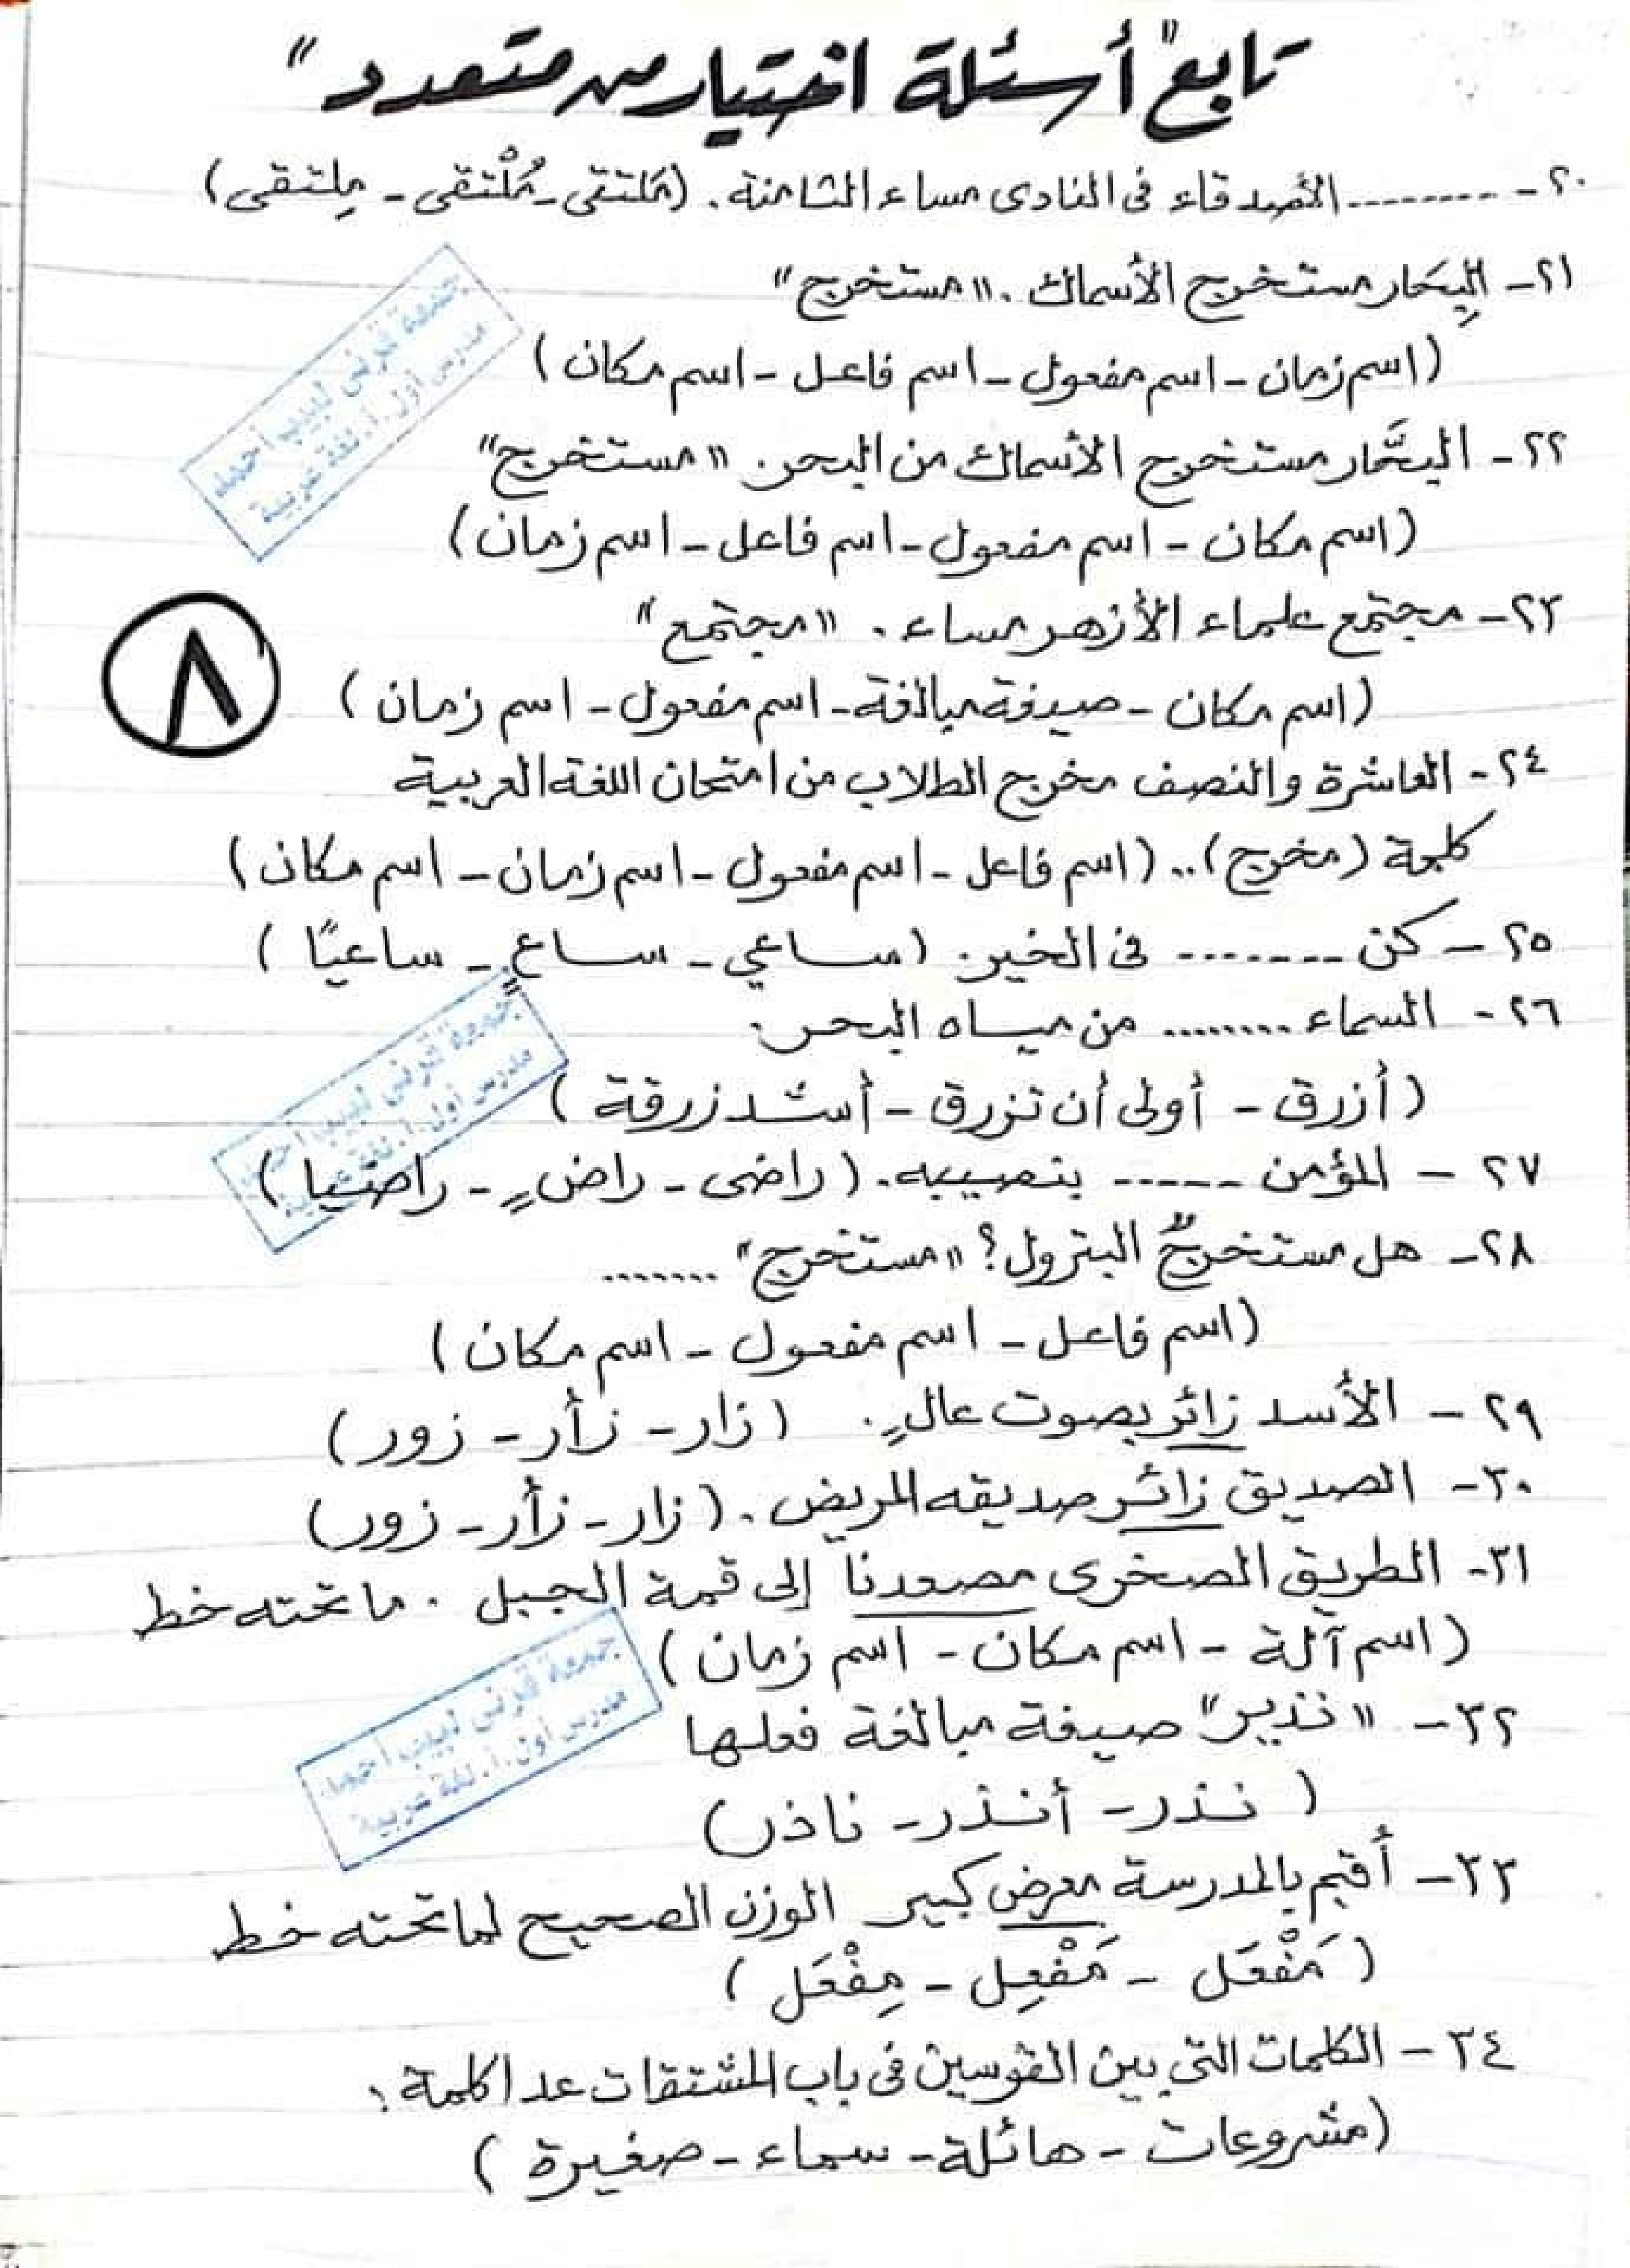 تابع "أسئلة اختيار من متعدد"
٢٠- -------- الأصدقاء فى النادى مساء الثامنة. (مَلتقى - مُلْتقى - مِلتقى)
٢١- البِحَار مستخرج الأسماك. "مستخرج"
(اسم زمان - اسم مفعول - اسم فاعل - اسم مكان)
٢٢- البحَّار مستخرج الأسماك من البحر. "مستخرج"
(اسم مكان - اسم مفعول - اسم فاعل - اسم زمان)
٢٣- مجتمع علماء الأزهر مساء. "مجتمع"
(اسم مكان - صيغة مبالغة - اسم مفعول - اسم زمان)
٨
٢٤- العاشرة والنصف مخرج الطلاب من امتحان اللغة العربية
كلمة (مخرج).. (اسم فاعل - اسم مفعول - اسم زمان - اسم مكان)
٢٥- كن ------- فى الخير. (ساعي - ساعٍ - ساعيًا)
٢٦- السماء ........ من مياه البحر.
(أزرق - أولى أن تزرق - أشد زرقة)
٢٧- المؤمن ----- بنصيبه. (راضى - راضٍ - راضيا)
٢٨- هل مستخرجٌ البترول؟ "مستخرج" .......
(اسم فاعل - اسم مفعول - اسم مكان)
٢٩- الأسد زائر بصوت عالٍ. (زار - زأر - زور)
٣٠- الصديق زائر صديقه المريض. (زار - زأر - زور)
٣١- الطريق الصخرى مصعدنا إلى قمة الجبل. ما تحته خط
(اسم آلة - اسم مكان - اسم زمان)
٣٢- "نذير" صيغة مبالغة فعلها
(نذر - أنذر - ناذر)
٣٣- أُقيم بالمدرسة معرض كبير الوزن الصحيح لما تحته خط
(مَفْعَل - مَفْعِل - مِفْعَل)
٣٤- الكلمات التى بين القوسين فى باب المشتقات عدا كلمة:
(مشروعات - هائلة - سماء - صغيرة)
جمعه قرنى لبيب احمد
مدرس أول .أ. لغة عربية
جمعه قرنى لبيب احمد
مدرس أول .أ. لغة عربية
جمعه قرنى لبيب احمد
مدرس أول .أ. لغة عربية